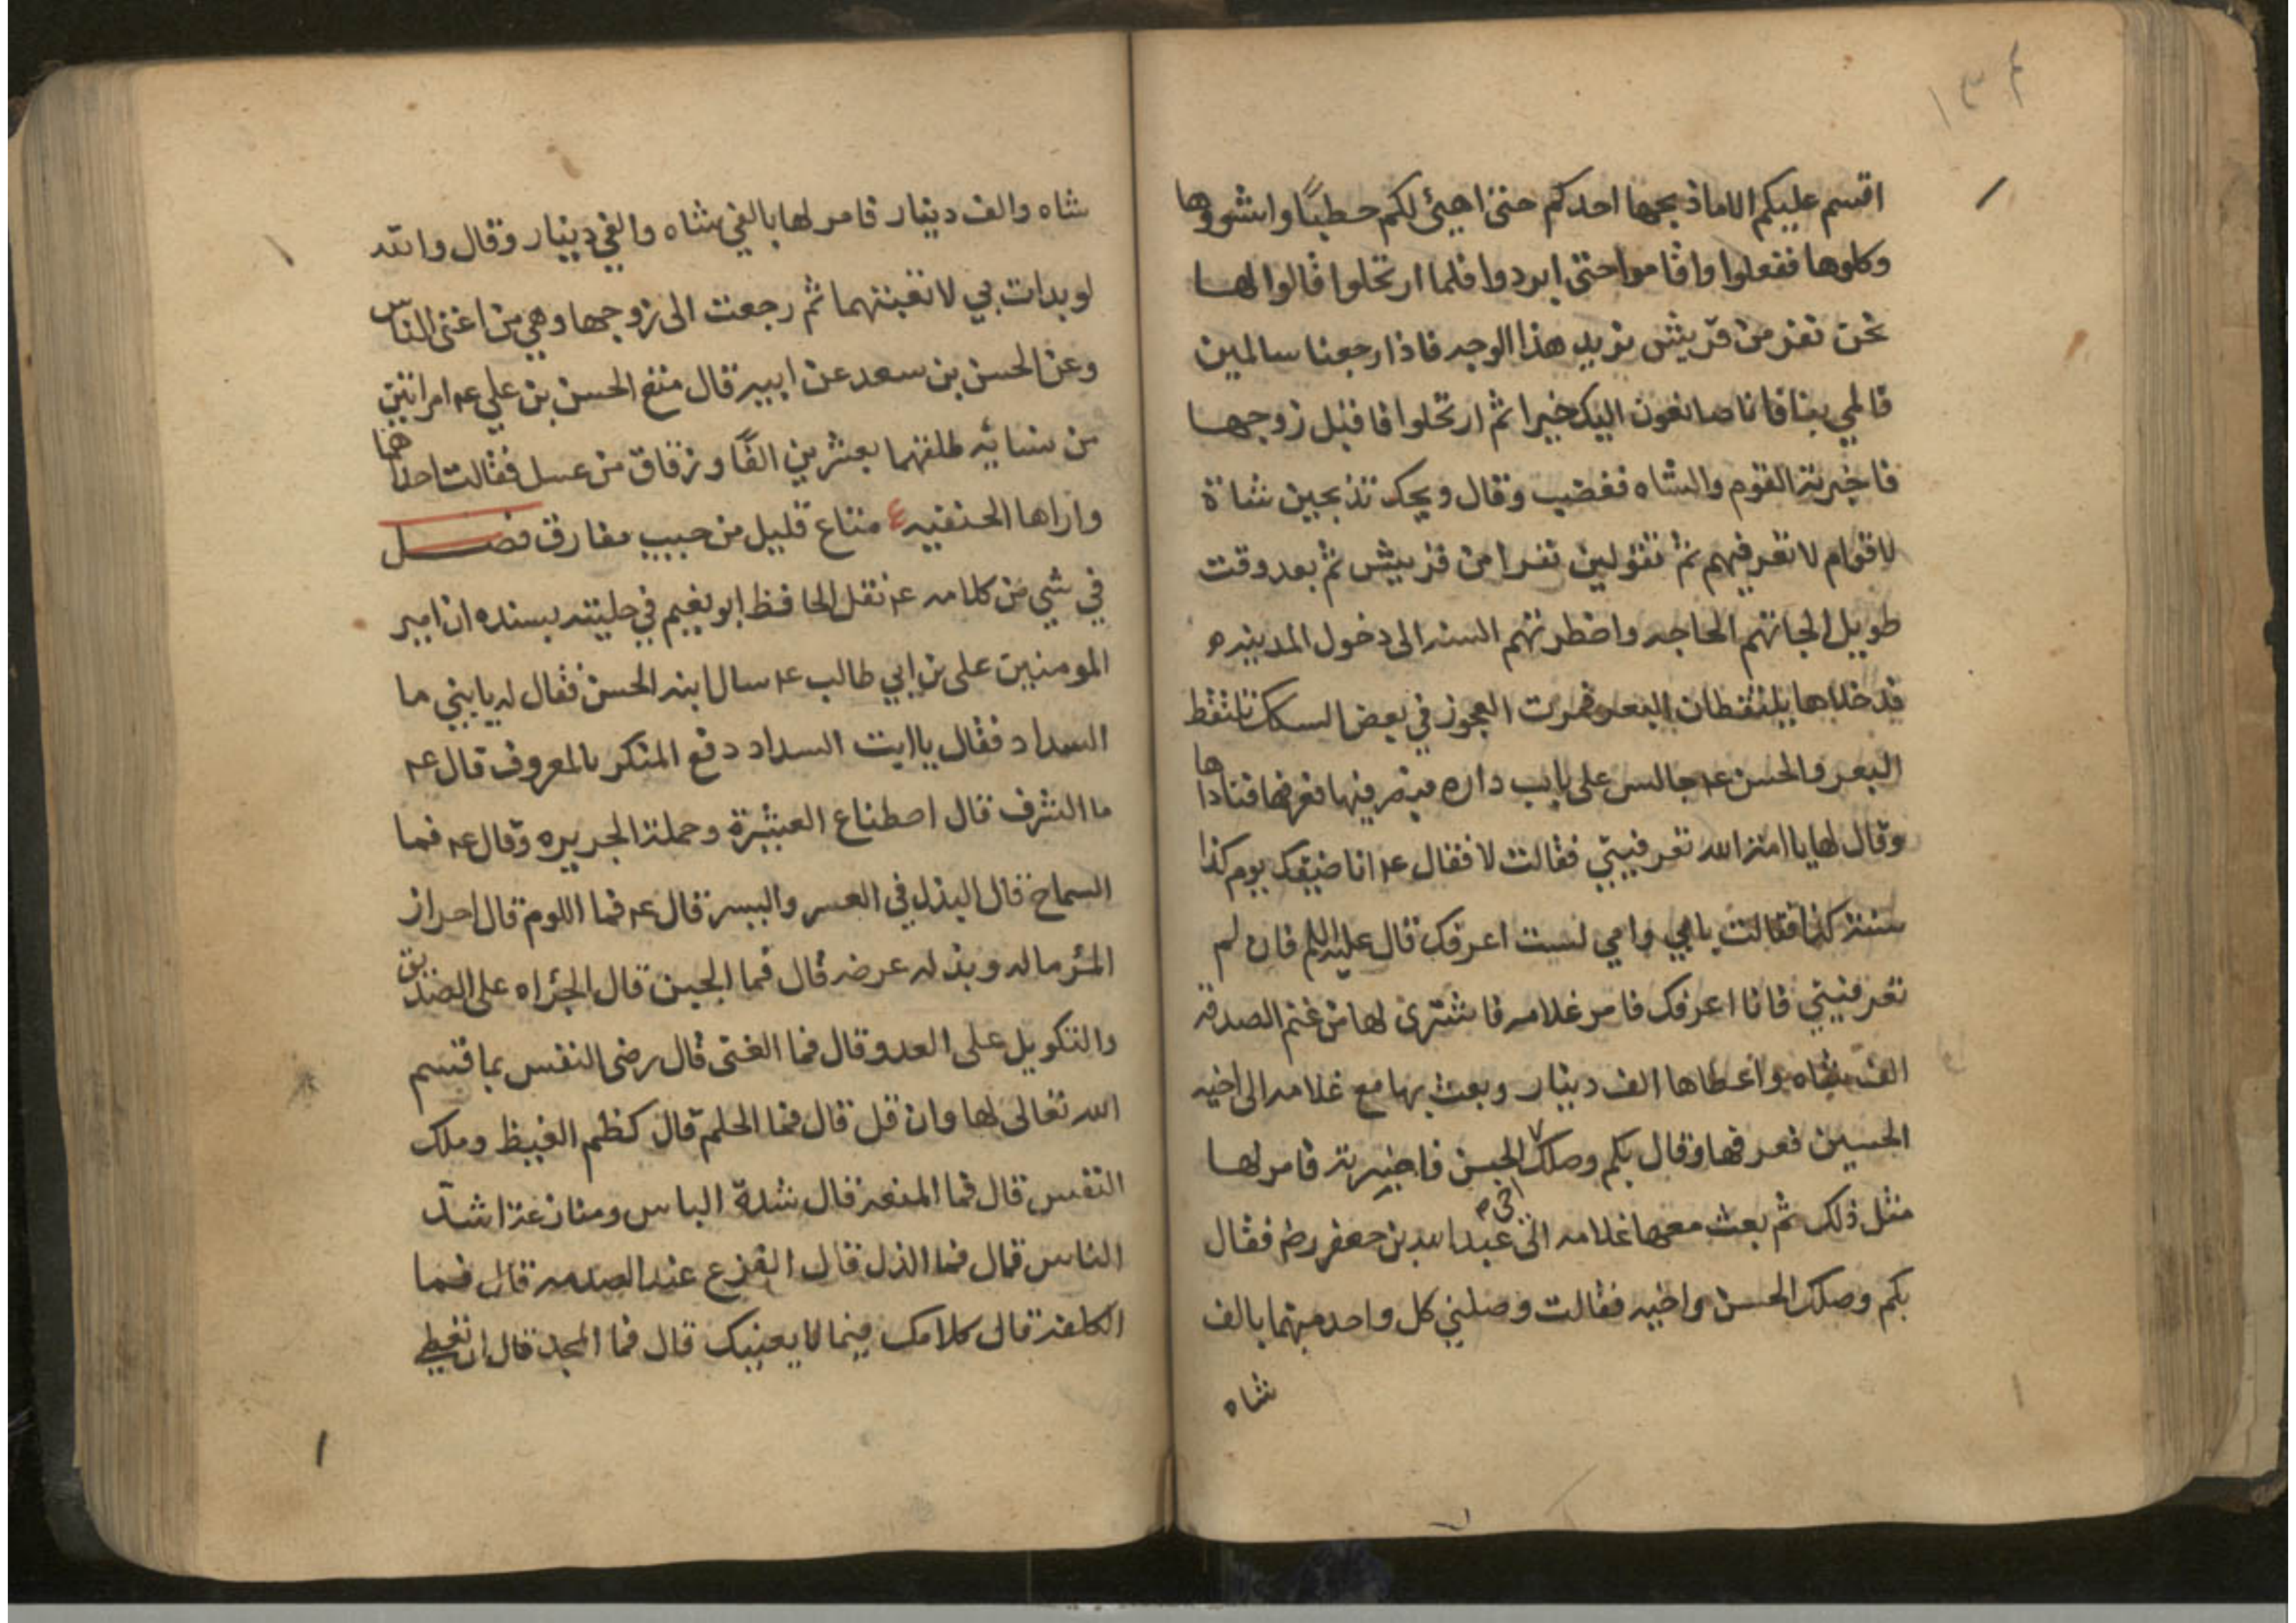 ١٣٤
اقسم عليكم الاما ذبحها احدكم حتى اهيئ لكم حطبًا واشووها
وكلوها ففعلوا واقاموا حتى ابردوا فلما ارتحلوا قالوا لها
نحن نفر من قريش نريد هذا الوجه فاذا رجعنا سالمين
فالمي بنا فانا صانعون اليك خيرا ثم ارتحلوا فاقبل زوجها
فاخبرته القوم والشاه فغضب وقال ويحك تذبحين شاة
لاقوام لا تعرفيهم ثم تقولين نفرا من قريش ثم بعد وقت
طويل الجاتهم الحاجه واضطرتهم السنه الى دخول المدينه
فدخلاها يلتقطان البعر فمرت العجوز في بعض السكك تلتقط
البعر والحسن ع جالس على باب داره فبصر فيها فعرفها فناداها
وقال لها يا امة الله تعرفيني فقالت لا فقال ع انا ضيفك يوم كذا
سنة كذا فقالت بابي وامي لست اعرفك قال عليه السلم فان لم
تعرفيني فانا اعرفك فامر غلامه فاشترى لها من غنم الصدقه
الف شاه واعطاها الف دينار وبعث بها مع غلامه الى اخيه
الحسين فعرفها وقال بكم وصلك اخي الحسن فاخبرته فامر لها
مثل ذلك ثم بعث معها غلامه الى عبد الله بن جعفر رض فقال
بكم وصلك الحسن واخيه فقالت وصلني كل واحد منهما بالف
شاه
شاه والف دينار فامر لها بالفي شاه والفي دينار وقال والله
لو بدات بي لاتعبتهما ثم رجعت الى زوجها وهي من اغنى الناس
وعن الحسن بن سعد عن ابيه قال متع الحسن بن علي ع امراتين
من نسائه طلقهما بعشرين الفًا وزقاق من عسل فقالت احداهما
واراها الحنفيه ع متاع قليل من حبيب مفارق فصل
في شي من كلامه ع نقل الحافظ ابو نعيم في حليته بسنده ان امير
المومنين على بن ابي طالب ع سال ابنه الحسن فقال له يا بني ما
السداد فقال يا ابت السداد دفع المنكر بالمعروف قال ع
ما الشرف قال اصطناع العشيرة وحملة الجريره وقال ع فما
السماح قال البذل في العسر واليسر قال ع فما اللوم قال احراز
المئر ماله وبذله عرضه قال فما الجبن قال الجراه على الصديق
والنكويل على العدو قال فما الغنى قال رضى النفس بما قسم
الله تعالى لها وان قل قال فما الحلم قال كظم الغيظ وملك
النفس قال فما المنعه قال شدة الباس ومنازعة اشد
الناس قال فما الذل قال الفزع عند الصدمه قال فما
الكلفة قال كلامك فيما لا يعنيك قال فما المجد قال ان تعطي